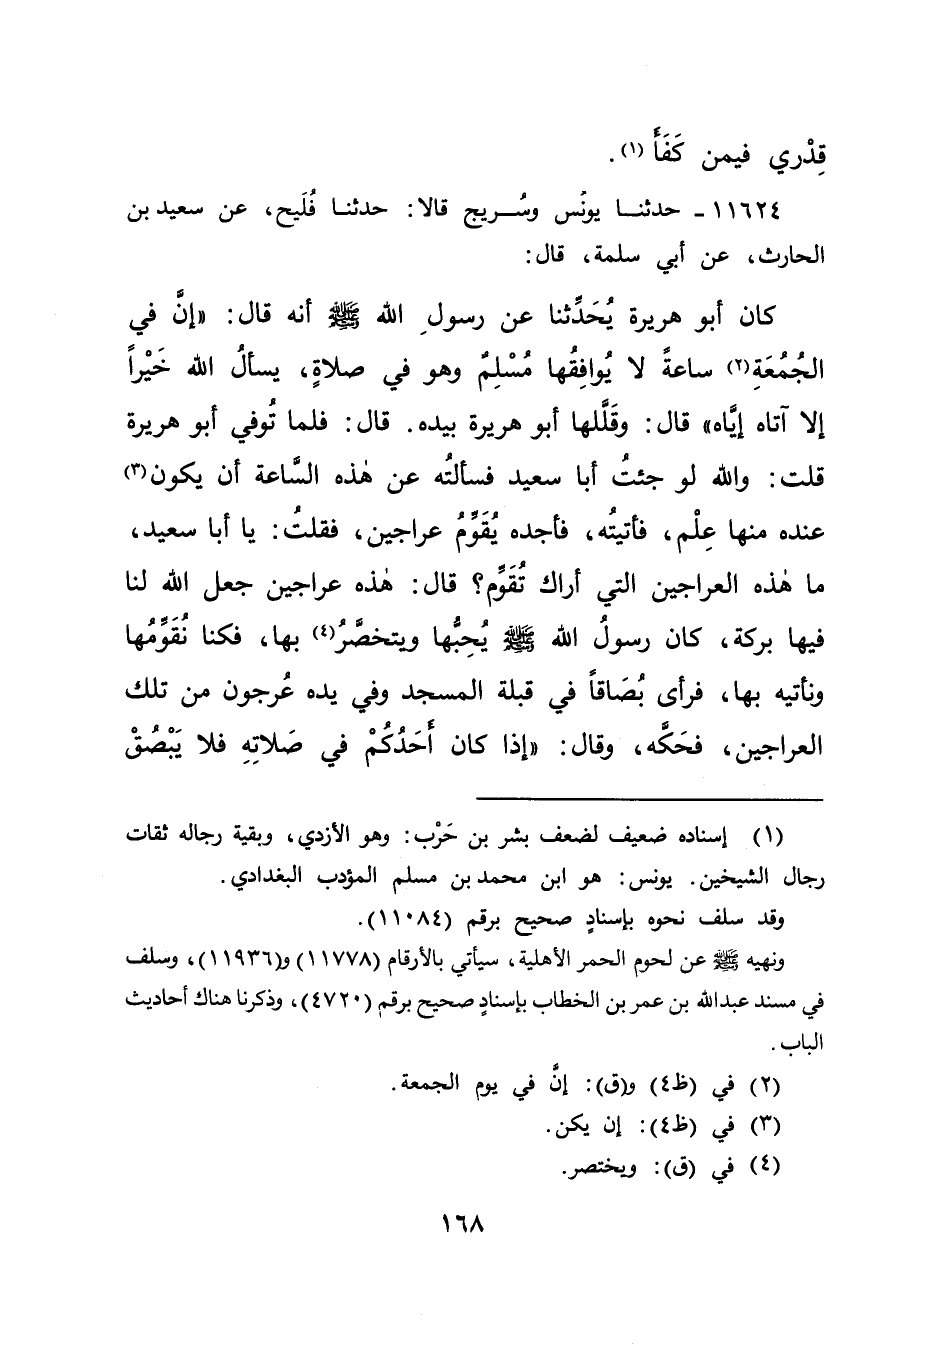 قِدْري فيمن كَفَأَ (١).
١١٦٢٤ - حدثنا يونُس وسُريج قالا: حدثنا فُلَيح، عن سعيد بن
الحارث، عن أبي سلمة، قال:
كان أبو هريرة يُحَدِّثنا عن رسولِ الله ﷺ أنه قال: «إنَّ في
الجُمُعَةِ(٢) ساعةً لا يُوافِقُها مُسْلِمٌ وهو في صلاةٍ، يسألُ الله خَيْراً
إلا آتاه إيَّاه» قال: وقَلَّلها أبو هريرة بيده. قال: فلما تُوفي أبو هريرة
قلت: والله لو جئتُ أبا سعيد فسألتُه عن هٰذه السَّاعة أن يكون(٣)
عنده منها عِلْم، فأتيتُه، فأجده يُقَوِّمُ عراجين، فقلتُ: يا أبا سعيد،
ما هٰذه العراجين التي أراك تُقَوِّم؟ قال: هٰذه عراجين جعل الله لنا
فيها بركة، كان رسولُ الله ﷺ يُحِبُّها ويتخصَّرُ(٤) بها، فكنا نُقَوِّمُها
ونأتيه بها، فرأى بُصَاقاً في قبلة المسجد وفي يده عُرجون من تلك
العراجين، فحَكَّه، وقال: «إذا كان أَحَدُكُمْ في صَلاتِهِ فلا يَبْصُقْ
(١) إسناده ضعيف لضعف بشر بن حَرْب: وهو الأزدي، وبقية رجاله ثقات
رجال الشيخين. يونس: هو ابن محمد بن مسلم المؤدب البغدادي.
وقد سلف نحوه بإسنادٍ صحيح برقم (١١٠٨٤).
ونهيه ﷺ عن لحوم الحمر الأهلية، سيأتي بالأرقام (١١٧٧٨) و(١١٩٣٦)، وسلف
في مسند عبدالله بن عمر بن الخطاب بإسنادٍ صحيح برقم (٤٧٢٠)، وذكرنا هناك أحاديث
الباب.
(٢) في (ظ٤) و(ق): إنَّ في يوم الجمعة.
(٣) في (ظ٤): إن يكن.
(٤) في (ق): ويختصر.
١٦٨